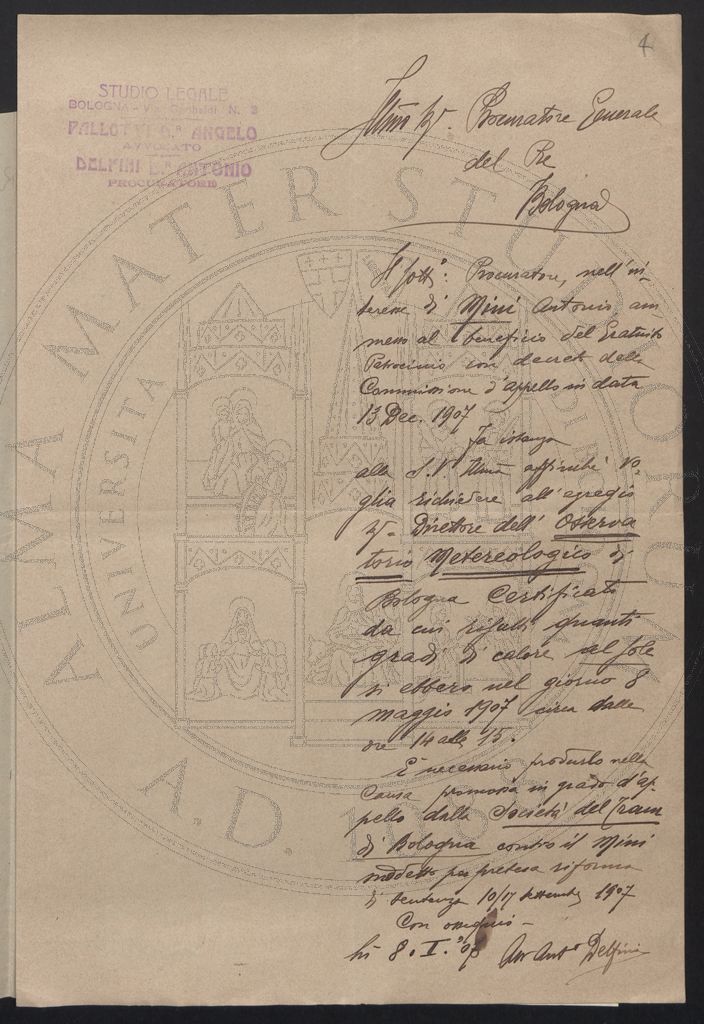 4
STUDIO LEGALE
BOLOGNA - Via Garibaldi N. 3
PALLOTTI D.R ANGELO
AVVOCATO
DELFINI D.R ANTONIO
PROCURATORE
Illmo Sr. Procuratore Generale
del Re
Bologna
Il sotto: Procuratore, nell'in-
teresse di Mini Antonio am
messo al beneficio del Gratuito
Patrocinio con decreto della
Commissione d'appello in data
13 Dec. 1907
Fa istanza
alla S.V. Illma affinché vo-
glia richiedere all'egregio
Sr. Direttore dell'Osserva
torio Metereologico di
Bologna Certificato
da cui risulti quanti
gradi di calore al sole
si ebbero nel giorno 8
maggio 1907 circa dalle
ore 14 alle 15.
È necessario produrlo nella
Causa promossa in grado d'ap-
pello dalla Società dei Tram
di Bologna contro il Mini
suddetto per pretesa riforma
di sentenza 10/17 settembre 1907
Con ossequio -
li 8. I. Avv Ant° Delfini
ALMA MATER STUDIORUM
UNIVERSITA
A.D. 1088